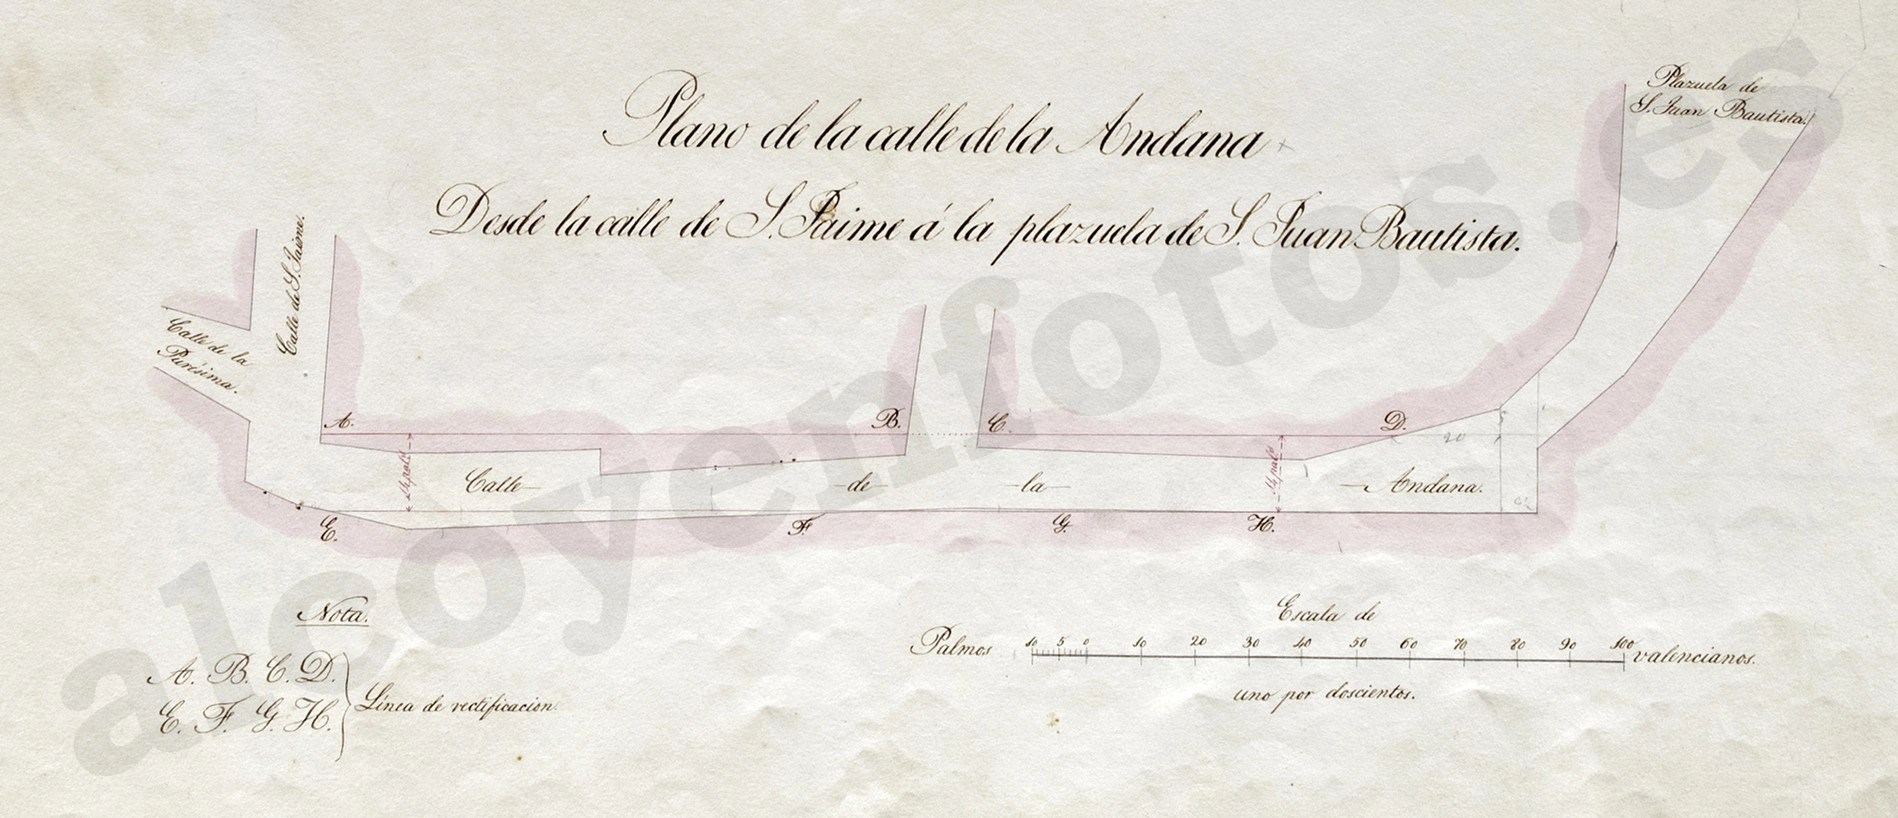 Plano de la calle de la Andana
Desde la calle de S. Jaime á la plazuela de S. Juan Bautista.
Plazuela de
S. Juan Bautista.
Calle de S. Jaime.
Calle de la
Purísima.
A.
B.
C.
D.
14 pal.s
14 pal.s
20
Calle de la Andana.
E.
F.
G.
H.
Nota.
A. B. C. D.
E. F. G. H.
Línea de rectificacion.
Escala de
Palmos 10 5 0 10 20 30 40 50 60 70 80 90 100 valencianos.
uno por doscientos.
alcoyenfotos.es